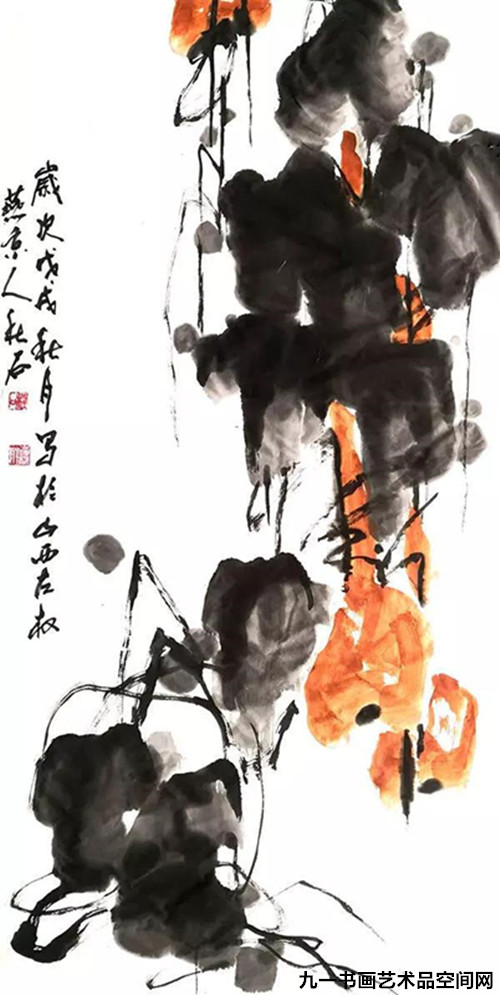 歲次戊戌秋月写於山西左权
燕京人秋石
九一书画艺术品空间网